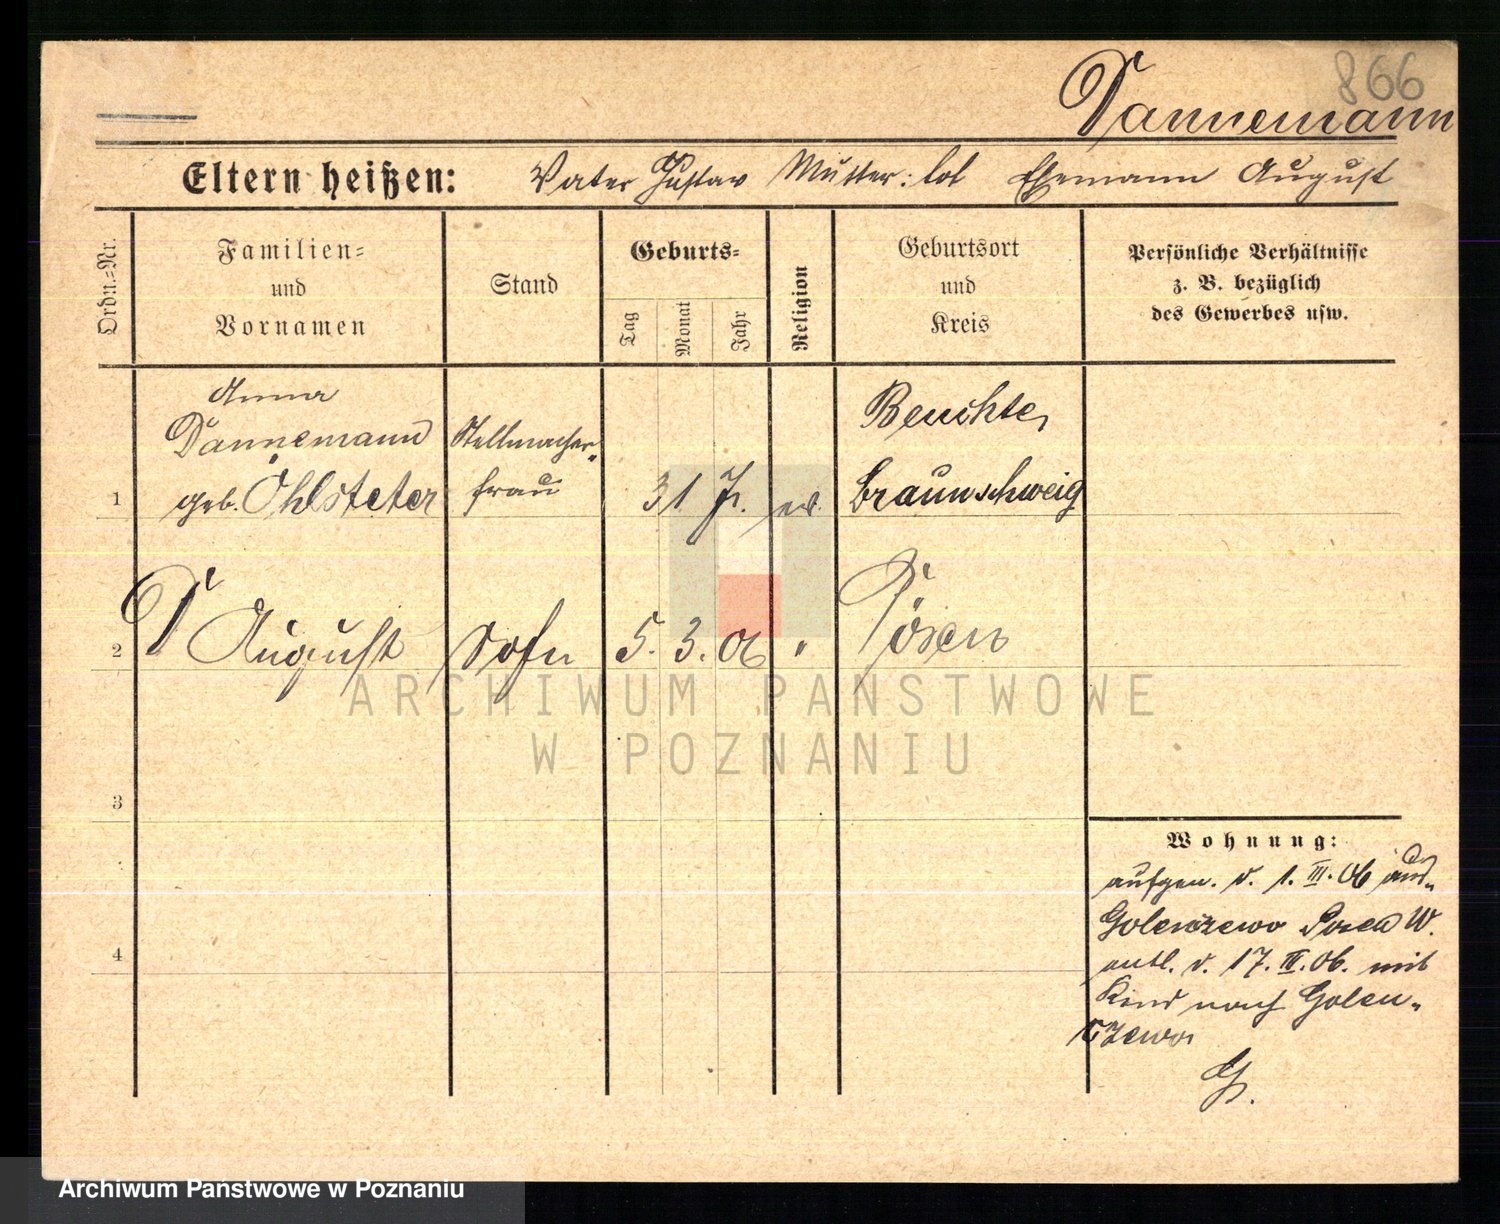 866
Dannemann
Eltern heißen: Vater Gustav Mutter: tot Ehemann August
Ordn.-Nr.
Familien-
und
Vornamen
Stand
Geburts-
Tag
Monat
Jahr
Religion
Geburtsort
und
Kreis
Persönliche Verhältnisse
z. B. bezüglich
des Gewerbes usw.
Anna
Dannemann
geb. Öhlsteter
Stellmacher-
frau
31 J.
ev.
Beuchte,
Braunschweig
1
2
D August
Sohn
5. 3. 06
"
Posen
ARCHIWUM PAŃSTWOWE
W POZNANIU
3
4
Wohnung:
aufgen. v. 1. III. 06 aus
Golenczewo Posen W.
entl. v. 17. III. 06. mit
Kind nach Golen-
czewo
G.
Archiwum Państwowe w Poznaniu